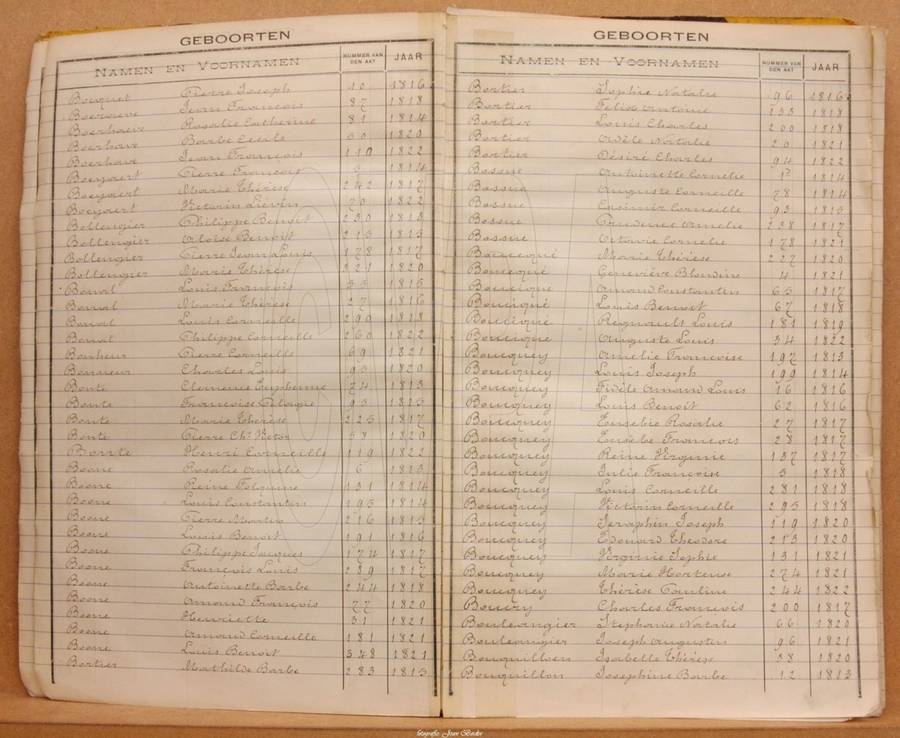 GEBOORTEN
NAMEN EN VOORNAMEN NUMMER VAN DEN AKT JAAR
Bocquet Pierre Joseph 10 1816
Boereve Jean François 87 1818
Boerhaeve Rosalie Catherine 81 1814
Boerhave Barbe Cecile 1820
Boerhave Jean François 110 1822
Boeyaert Pierre François 1814
Boeyaert Marie Thérèse 242 1817
Boeyaert Victorin Liévin 70 1822
Bollengier Philippe Benoit 230 1813
Bollengier Aloïse Benoit 213 1815
Bollengier Pierre Jean Louis 178 1817
Bollengier Marie Thérèse 221 1820
Bonal Louis François 1815
Bonal Marie Thérèse 27 1816
Bonal Louis Corneille 290 1818
Bonal Philippe Corneille 260 1822
Bonheur Pierre Corneille 69 1821
Bonneur Charles Louis 1820
Bonte Clemence Euphemie 24 1813
Bonte Françoise 93 1815
Bonte Marie Thérèse 225 1817
Bonte Pierre Ch. Victor 58 1820
Bonte Henri Corneille 119 1822
Boone Rosalie Amelie 6 1813
Boone Reine 131 1814
Boone Louis Constantin 195 1814
Boone Pierre Martin 216 1815
Boone Louis Benoit 191 1816
Boone Philippe Jacques 174 1817
Boone François Louis 239 1817
Boone Antoinette Barbe 244 1818
Boone Amand François 77 1820
Boone Henriette 31 1821
Boone Amand Corneille 181 1821
Boone Louis Benoit 348 1821
Bortier Mathilde Barbe 283 1813
GEBOORTEN
NAMEN EN VOORNAMEN NUMMER VAN DEN AKT JAAR
Bortier Sophie Natalie 96 1816
Bortier Felix Antoine 133 1818
Bortier Louis Charles 200 1818
Bortier Adèle Natalie 20 1821
Bortier Désiré Charles 94 1822
Bossue Antoinette Cornelie 1814
Bossue Auguste Corneille 78 1814
Bossue Casimir Corneille 93 1815
Bossue Prudence Amelie 238 1817
Bossue Octavie Cornelie 178 1821
Boucqué Marie Thérèse 227 1820
Boucqué Geneviève Blondine 4 1821
Boucique Amand Constantin 63 1817
Bouciqué Louis Benoit 67 1818
Bouciqué Regnault Louis 181 1819
Boucique Auguste Louis 34 1822
Boucquey Amelie Françoise 197 1813
Boucquey Louis Joseph 199 1814
Boucquey Fidèle Amand Louis 16 1816
Boucquey Louis Benoit 62 1816
Boucquey Eusebie Rosalie 27 1817
Boucquey Eusèbe François 28 1817
Boucquey Reine Virginie 137 1817
Boucquey Julie Françoise 3 1818
Boucquey Louis Corneille 281 1818
Boucquey Victorin Corneille 295 1818
Boucquey Seraphin Joseph 119 1820
Boucquey Edouard Theodore 213 1820
Boucquey Virginie Sophie 131 1821
Boucquey Marie Hortense 274 1821
Boucquey Thérèse Pauline 244 1822
Boudry Charles François 200 1817
Boulengier Stephanie Natalie 66 1820
Boulengier Joseph Augustin 96 1821
Bouquilloen Isabelle Thérèse 38 1820
Bouquillon Josephine Barbe 12 1813
fotografie: Jean Bader